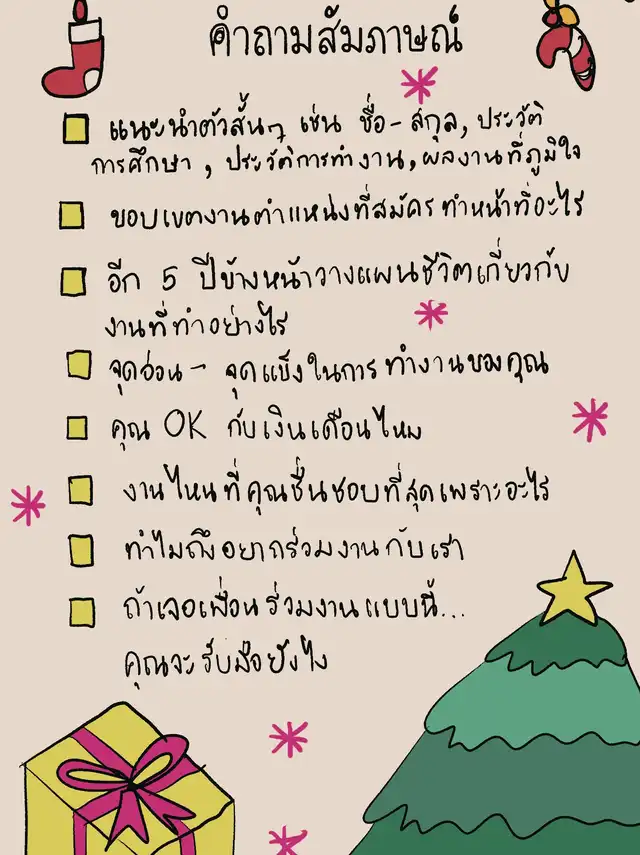 คำถามสัมภาษณ์
แนะนำตัวสั้นๆ เช่น ชื่อ-สกุล, ประวัติ
การศึกษา, ประวัติการทำงาน, ผลงานที่ภูมิใจ
ขอบเขตงานตำแหน่งที่สมัคร ทำหน้าที่อะไร
อีก 5 ปีข้างหน้าวางแผนชีวิตเกี่ยวกับ
งานที่ทำอย่างไร
จุดอ่อน - จุดแข็งในการทำงานของคุณ
คุณ OK กับเงินเดือนไหม
งานไหนที่คุณชื่นชอบที่สุดเพราะอะไร
ทำไมถึงอยากร่วมงานกับเรา
ถ้าเจอเพื่อนร่วมงานแบบนี้...
คุณจะรับมือยังไง